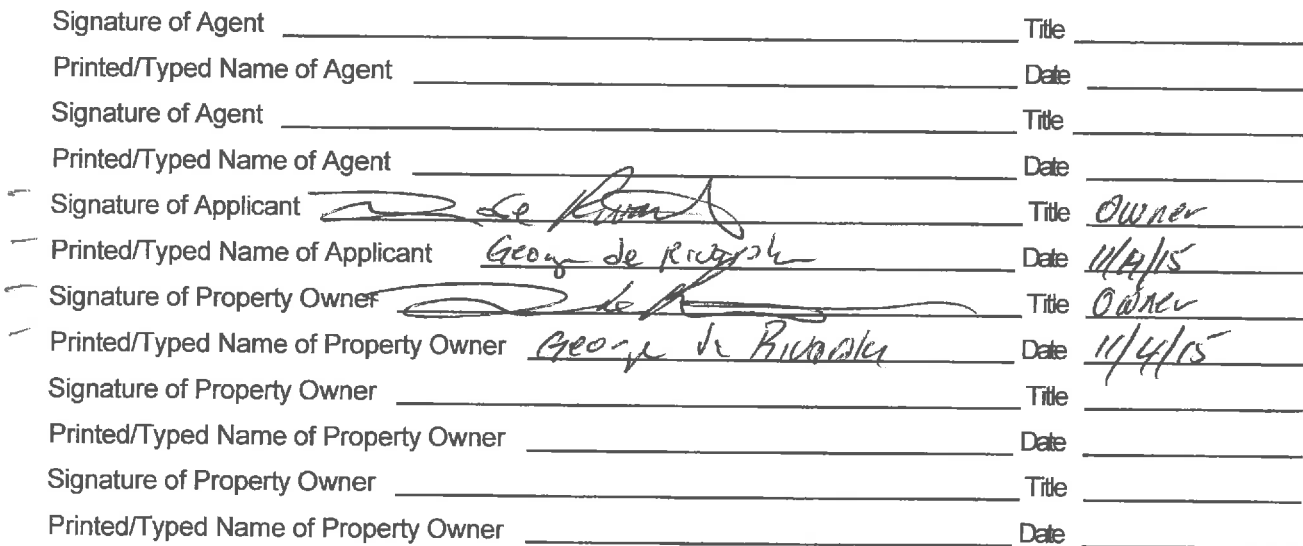 Signature of Agent Title
Printed/Typed Name of Agent Date
Signature of Agent Title
Printed/Typed Name of Agent Date
Signature of Applicant de Title Owner
Printed/Typed Name of Applicant George de Date 11/4/15
Signature of Property Owner de Title Owner
Printed/Typed Name of Property Owner George de Date 11/4/15
Signature of Property Owner Title
Printed/Typed Name of Property Owner Date
Signature of Property Owner Title
Printed/Typed Name of Property Owner Date